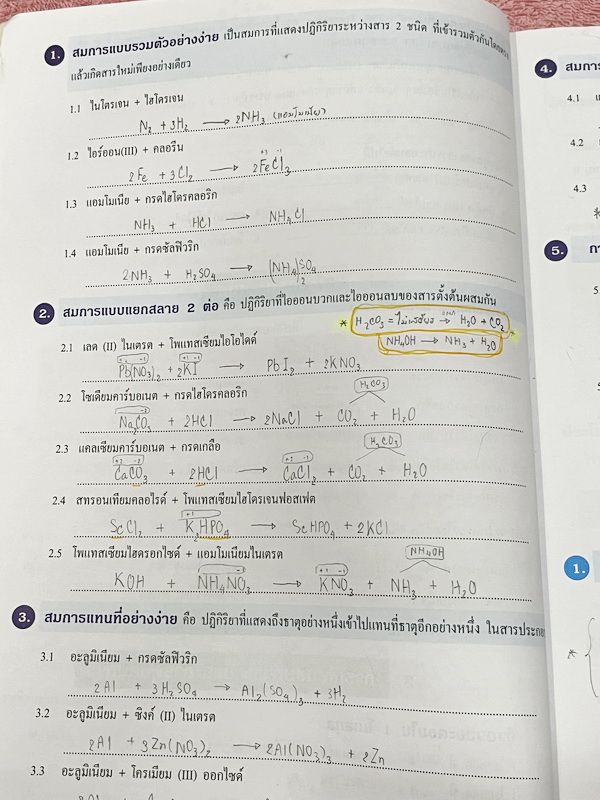 1. สมการแบบรวมตัวอย่างง่าย เป็นสมการที่แสดงปฏิกิริยาระหว่างสาร 2 ชนิด ที่เข้ารวมตัวกันโดยตรง
แล้วเกิดสารใหม่เพียงอย่างเดียว
1.1 ไนโตรเจน + ไฮโดรเจน
N₂ + 3H₂ ⟶ 2NH₃ (แอมโมเนีย)
1.2 ไอร์ออน(III) + คลอรีน
2Fe + 3Cl₂ ⟶ 2FeCl₃
1.3 แอมโมเนีย + กรดไฮโดรคลอริก
NH₃ + HCl ⟶ NH₄Cl
1.4 แอมโมเนีย + กรดซัลฟิวริก
2NH₃ + H₂SO₄ ⟶ (NH₄)₂SO₄
2. สมการแบบแยกสลาย 2 ต่อ คือ ปฏิกิริยาที่ไอออนบวกและไอออนลบของสารตั้งต้นผสมกัน
* H₂CO₃ = ไม่เสถียร ⟶ H₂O + CO₂ *
NH₄OH ⟶ NH₃ + H₂O
2.1 เลด (II) ไนเตรต + โพแทสเซียมไอโอไดด์
Pb(NO₃)₂ + 2KI ⟶ PbI₂ + 2KNO₃
2.2 โซเดียมคาร์บอเนต + กรดไฮโดรคลอริก
H₂CO₃
Na₂CO₃ + 2HCl ⟶ 2NaCl + CO₂ + H₂O
2.3 แคลเซียมคาร์บอเนต + กรดเกลือ
H₂CO₃
CaCO₃ + 2HCl ⟶ CaCl₂ + CO₂ + H₂O
2.4 สทรอนเทียมคลอไรด์ + โพแทสเซียมไฮโดรเจนฟอสเฟต
ScCl₂ + K₂HPO₄ ⟶ ScHPO₄ + 2KCl
2.5 โพแทสเซียมไฮดรอกไซด์ + แอมโมเนียมไนเตรต
NH₄OH
KOH + NH₄NO₃ ⟶ KNO₃ + NH₃ + H₂O
3. สมการแทนที่อย่างง่าย คือ ปฏิกิริยาที่แสดงถึงธาตุอย่างหนึ่งเข้าไปแทนที่ธาตุอีกอย่างหนึ่ง ในสารประกอ
3.1 อะลูมิเนียม + กรดซัลฟิวริก
2Al + 3H₂SO₄ ⟶ Al₂(SO₄)₃ + 3H₂
3.2 อะลูมิเนียม + ซิงค์ (II) ไนเตรต
2Al + 3Zn(NO₃)₂ ⟶ 2Al(NO₃)₃ + 2Zn
3.3 อะลูมิเนียม + โครเมียม (III) ออกไซด์
4. สมการ
4.1
4.2
4.3
5.
5.
1.
*